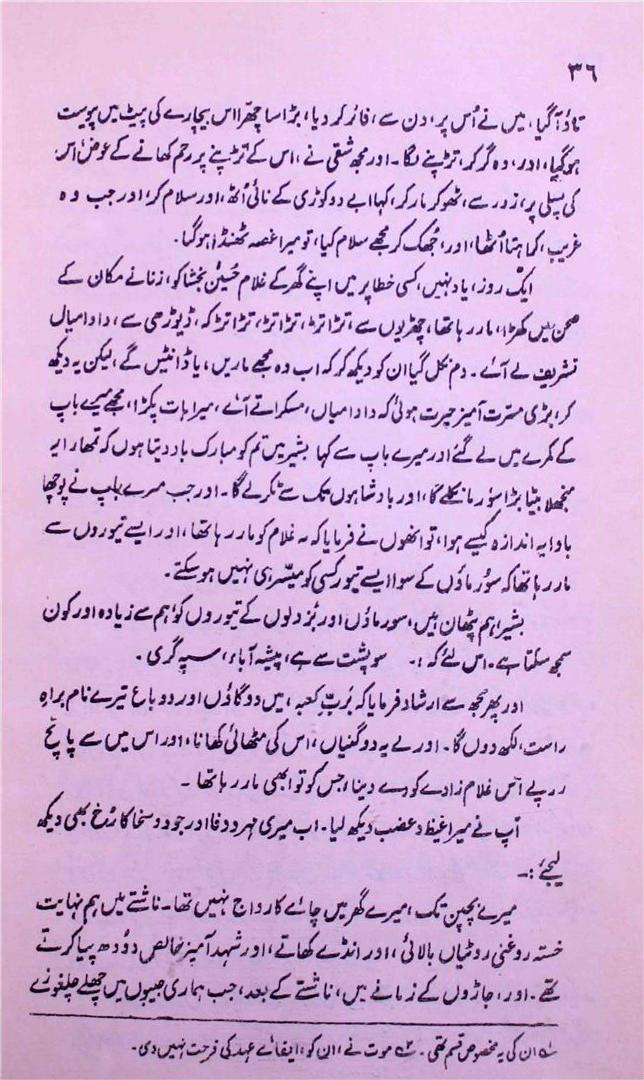 ۳۶
تاؤ آگیا، میں نے اُس پر، دن سے، فائر کر دیا، بڑا سا چھرا اس بیچارے کی پیٹ میں پیوست
ہوگیا، اور، وہ گر کر، تڑپنے لگا۔ اور مجھ شقی نے، اس کے تڑپنے پر رحم کھانے کے عوض اس
کی پسلی پر، زور سے، ٹھوکر مار کر، کہا ابے دو کوڑی کے نائی اُٹھ، اور سلام کر، اور جب وہ
غریب، کراہتا اُٹھا، اور، جھک کر مجھے سلام کیا، تو میرا غصہ ٹھنڈا ہوگیا۔
ایک روز، یاد نہیں، کسی خطا پر میں اپنے گھر کے غلام حُسین بخشا کو، زنانے مکان کے
صحن میں کھڑا، مار رہا تھا، چھڑیوں سے، تڑا تڑ، تڑا تڑ، تڑا تڑ کہ، ڈیوڑھی سے، دادا میاں
تشریف لے آئے۔ دم نکل گیا ان کو دیکھ کر کہ اب وہ مجھے ماریں، یا ڈانٹیں گے، لیکن یہ دیکھ
کر، بڑی مسّرت آمیز حیرت ہوئی کہ دادا میاں، مسکراتے آئے، میرا ہات پکڑا، مجھے میرے باپ
کے کمرے میں لے گئے اور میرے باپ سے کہا بشیر میں تم کو مبارک باد دیتا ہوں کہ تمھارا یہ
منجھلا بیٹا بڑا سؤرما نکلے گا، اور بادشاہوں تک سے ٹکر لے گا۔ اور جب مرے باپ نے پوچھا
باوا یہ اندازہ کیسے ہوا، تو انھوں نے فرمایا کہ یہ غلام کو مار رہا تھا، اور ایسے تیوروں سے
مار رہا تھا کہ سؤرماؤں کے سوا ایسے تیور کسی کو میسّر ہی نہیں ہو سکتے۔
بشیر، ہم پٹھان ہیں، سورماؤں اور بُزدلوں کے تیوروں کو، ہم سے زیادہ اور کون
سمجھ سکتا ہے۔ اس لئے کہ :۔ سو پشت سے ہے، پیشۂ آباء، سپہ گری۔
اور پھر مجھ سے ارشاد فرمایا کہ بُربِّ کعبہ، میں دو گاؤں اور دو باغ تیرے نام براہِ
راست، لکھ دوں گا۔ اور لے یہ دو گنیاں، اس کی مٹھائی کھانا، اور اس میں سے پانچ
روپے اس غلام زادے کو دے دینا، جس کو تو ابھی مار رہا تھا۔
آپ نے میرا غیظ و غضب دیکھ لیا۔ اب میری مہر و وفا اور جود و سخا کا رُخ بھی دیکھ
لیجئے :۔
میرے بچپن تک، میرے گھر میں چائے کا رواج نہیں تھا۔ ناشتے میں ہم نہایت
خستہ روغنی روٹیاں بالائی، اور انڈے کھاتے، اور شہد آمیز خالص دُودھ پیا کرتے
تھے۔ اور، جاڑوں کے زمانے میں، ناشتے کے بعد، جب ہماری جیبوں میں چھلے چلغوزے
۱؎ ان کی یہ مخصوص قسم تھی۔ ۲؎ موت نے، ان کو، ایفائے عہد کی فرصت نہیں دی۔